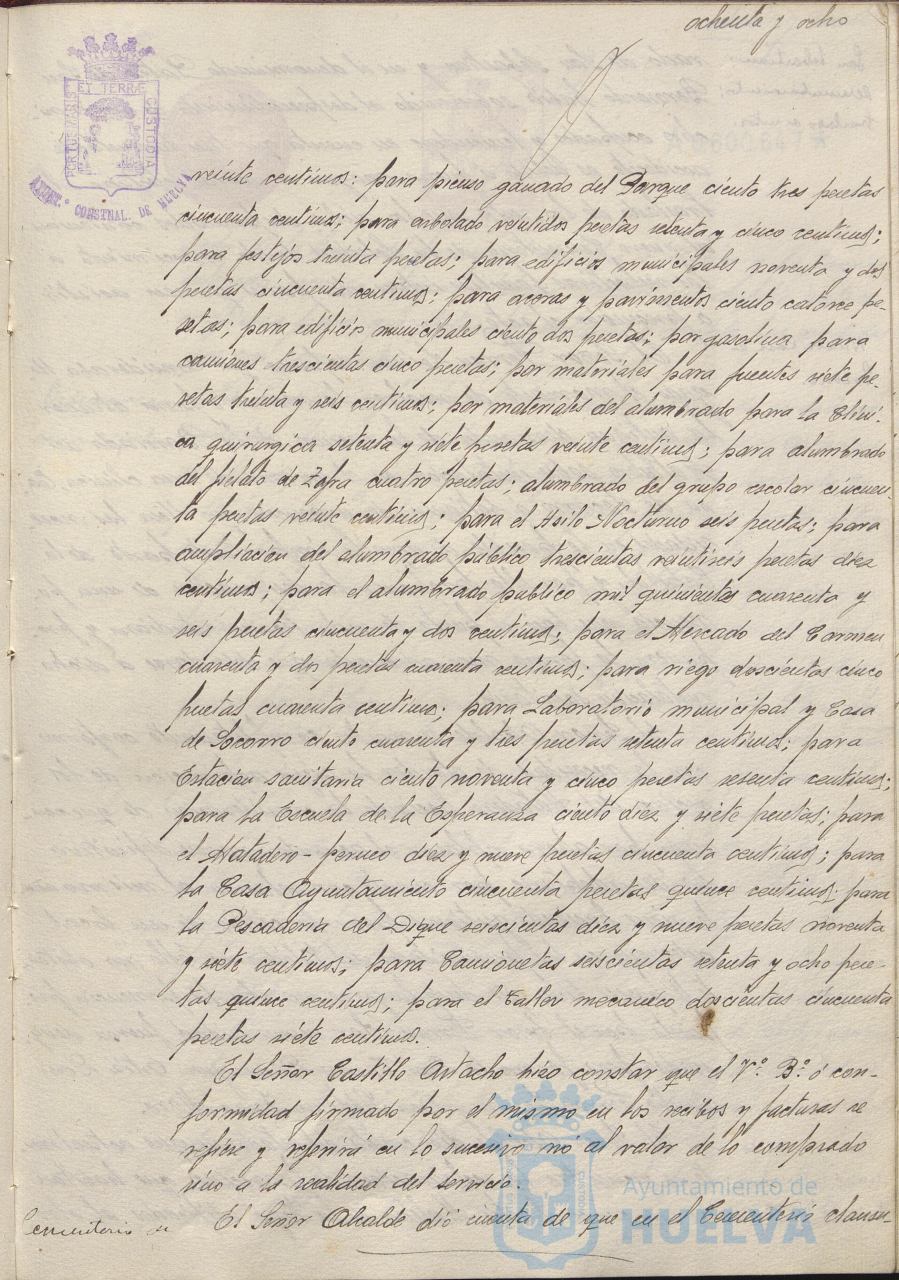 ochenta y ocho
PORTUS MARIS ET TERRÆ CUSTODIA
AYUNT.º CONSTNAL. DE HUELVA
veinte centimos: para pienso ganado del Parque ciento tres pesetas
cincuenta centimos; para arbolado veintidos pesetas setenta y cinco centimos;
para festejos treinta pesetas; para edificios municipales noventa y dos
pesetas cincuenta centimos; para aceras y pavimentos ciento catorce pe-
setas; para edificio municipales ciento dos pesetas; por gasolina para
camiones trescientas cinco pesetas; por materiales para fuentes siete pe-
setas treinta y seis centimos; por materiales del alumbrado para la Clini-
ca quirurgica setenta y siete pesetas veinte centimos; para alumbrado
del fielato de Zafra cuatro pesetas; alumbrado del grupo escolar cincuen-
ta pesetas veinte centimos; para el Asilo Nocturno seis pesetas; para
ampliacion del alumbrado público trescientas veintiseis pesetas diez
centimos; para el alumbrado publico mil quinientas cuarenta y
seis pesetas cincuenta y dos centimos; para el Mercado del Carmen
cuarenta y dos pesetas cuarenta centimos; para riego doscientas cinco
pesetas cuarenta centimos; para Laboratorio municipal y Casa
de Socorro ciento cuarenta y tres pesetas setenta centimos; para
Estación sanitaria ciento noventa y cinco pesetas setenta centimos;
para la Escuela de la Esperanza ciento diez y siete pesetas; para
el Matadero-perneo diez y nueve pesetas cincuenta centimos; para
la Casa Ayuntamiento cincuenta pesetas quince centimos; para
la Pescaderia del Dique seiscientas diez y nueve pesetas noventa
y siete centimos; para Camionetas seiscientas setenta y ocho pese-
tas quince centimos; para el Taller mecanico doscientas cincuenta
pesetas siete centimos.
El Señor Castillo Artacho hizo constar que el Vº. Bº. ó con-
formidad firmado por el mismo en los recibos y facturas se
refiere y referirá en lo sucesivo nó al valor de lo comprado
sino a la realidad del servicio.
Cementerio
El Señor Alcalde dió cuenta de que en el Cementerio clausu-
Ayuntamiento de
HUELVA